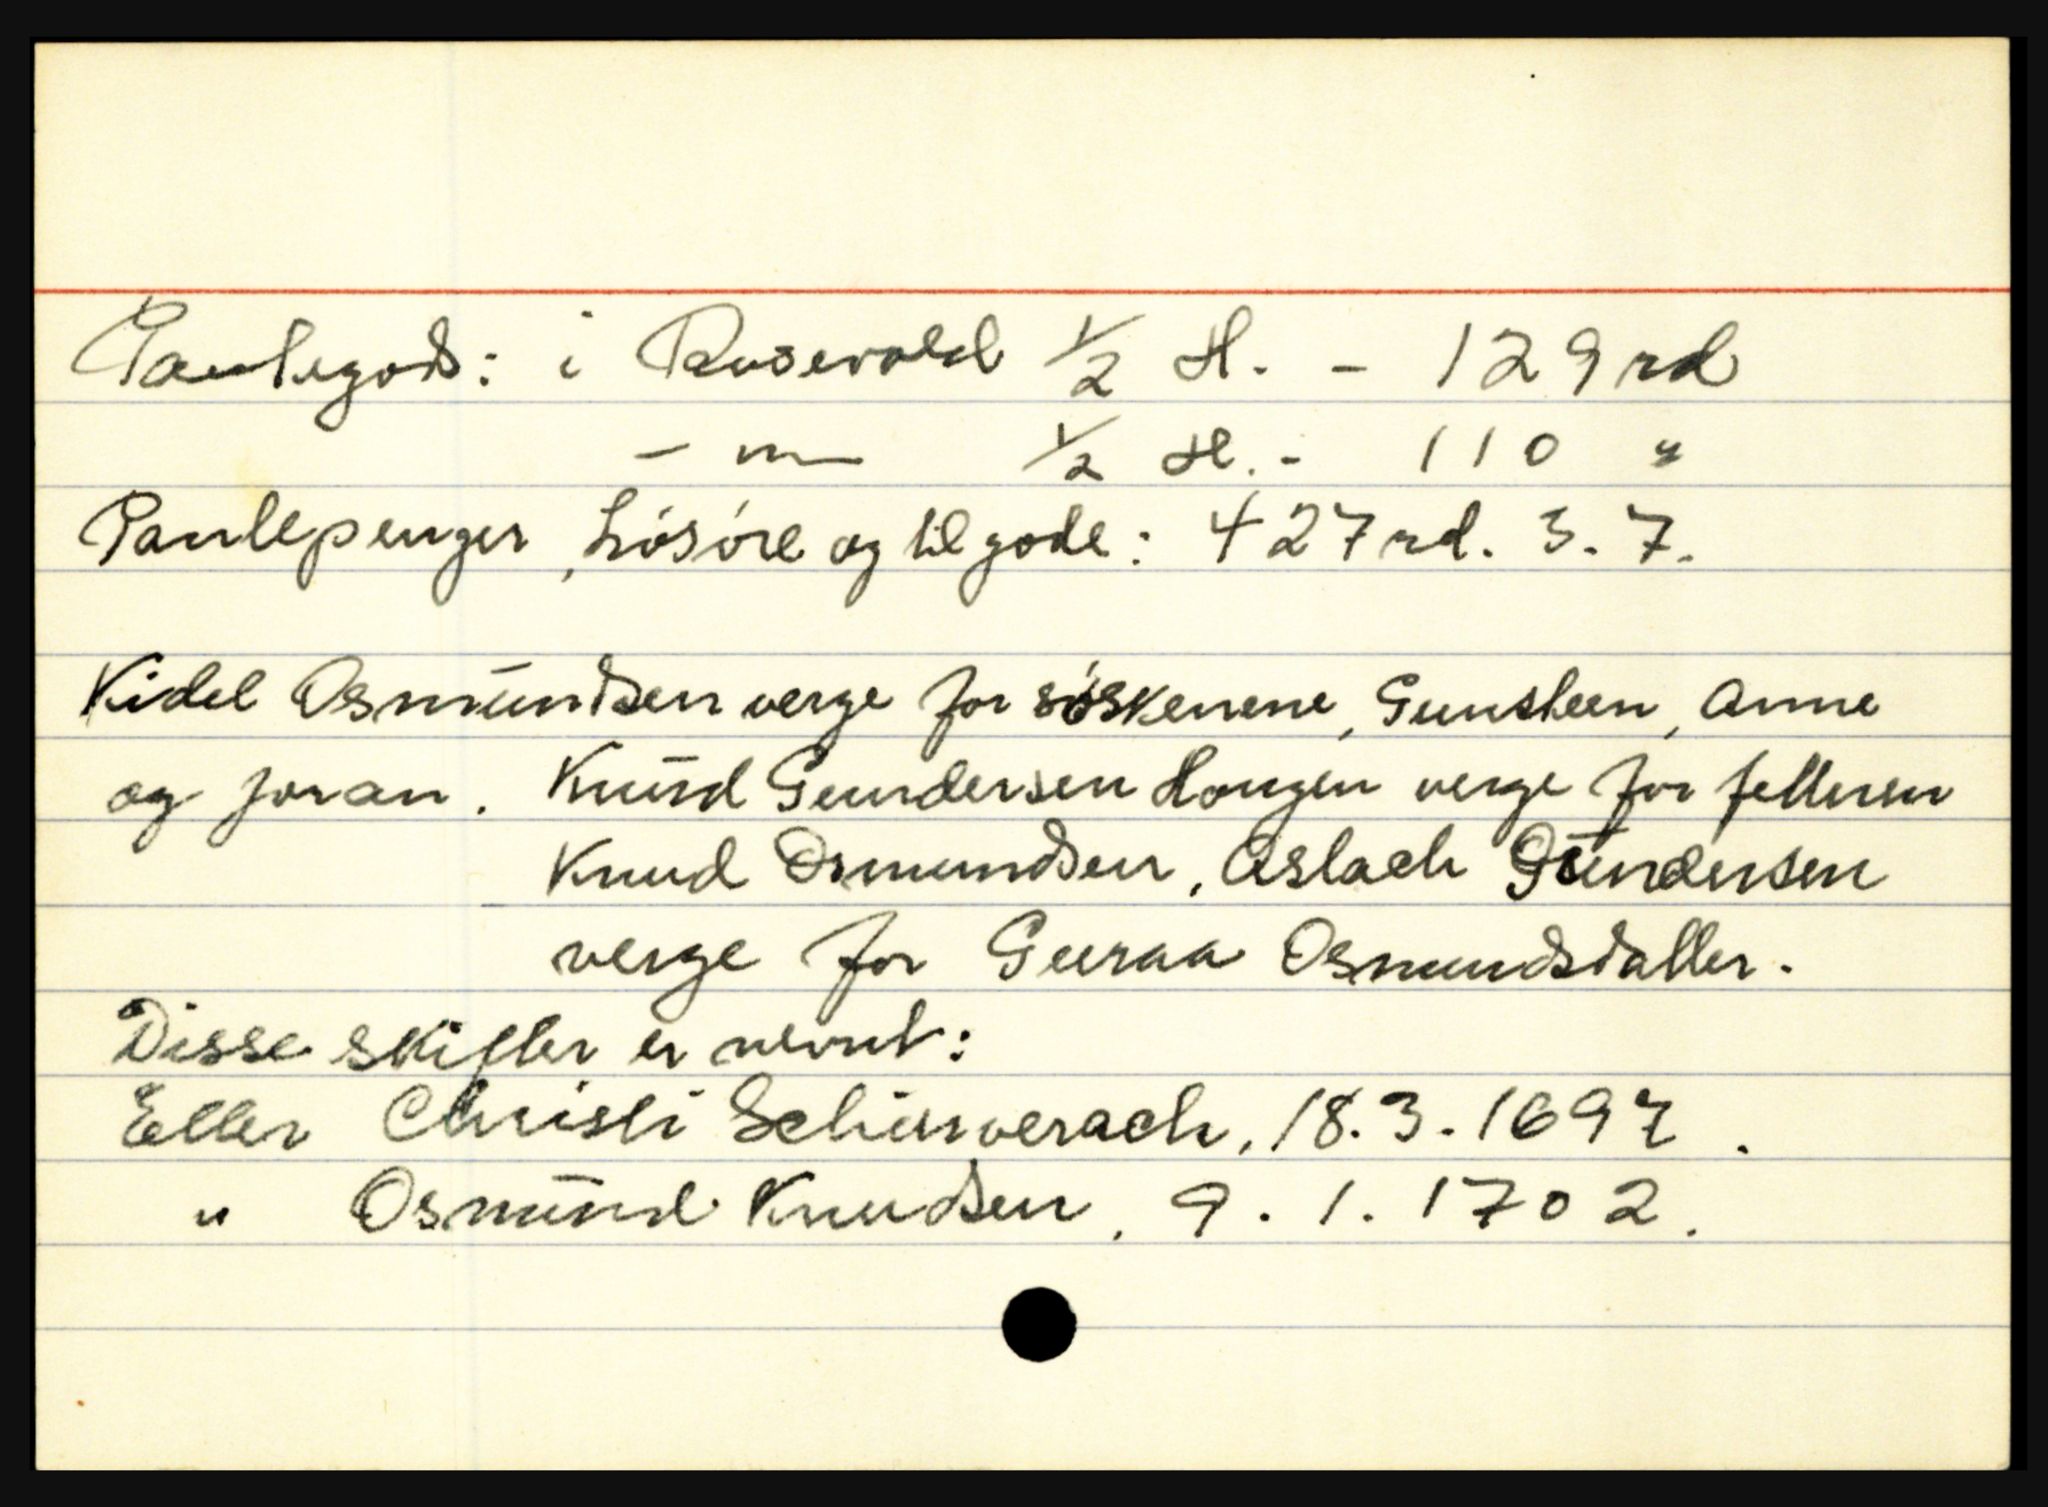 Pantegods: i Rosevold 1/2 H. - 129 rd
- " - 1/2 H. - 110 "
Pantepenger, Lösöre og tilgode: 427 rd. 3. 7.
Kidel Osmundsen verge for söskenene, Gunsteen, Anne
og Joran. Knud Gundersen Haugen verge for fetteren
Knud Osmundsen, Aslach Gundersen
verge for Guraa Osmundsdatter.
Disse skifter er nevnt:
Etter Christi 18.3.1697.
" Osmund Knudsen, 9.1.1702.